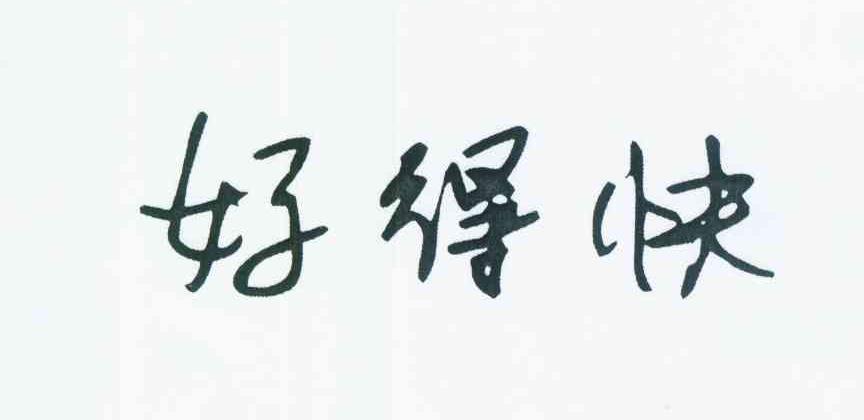 好得快